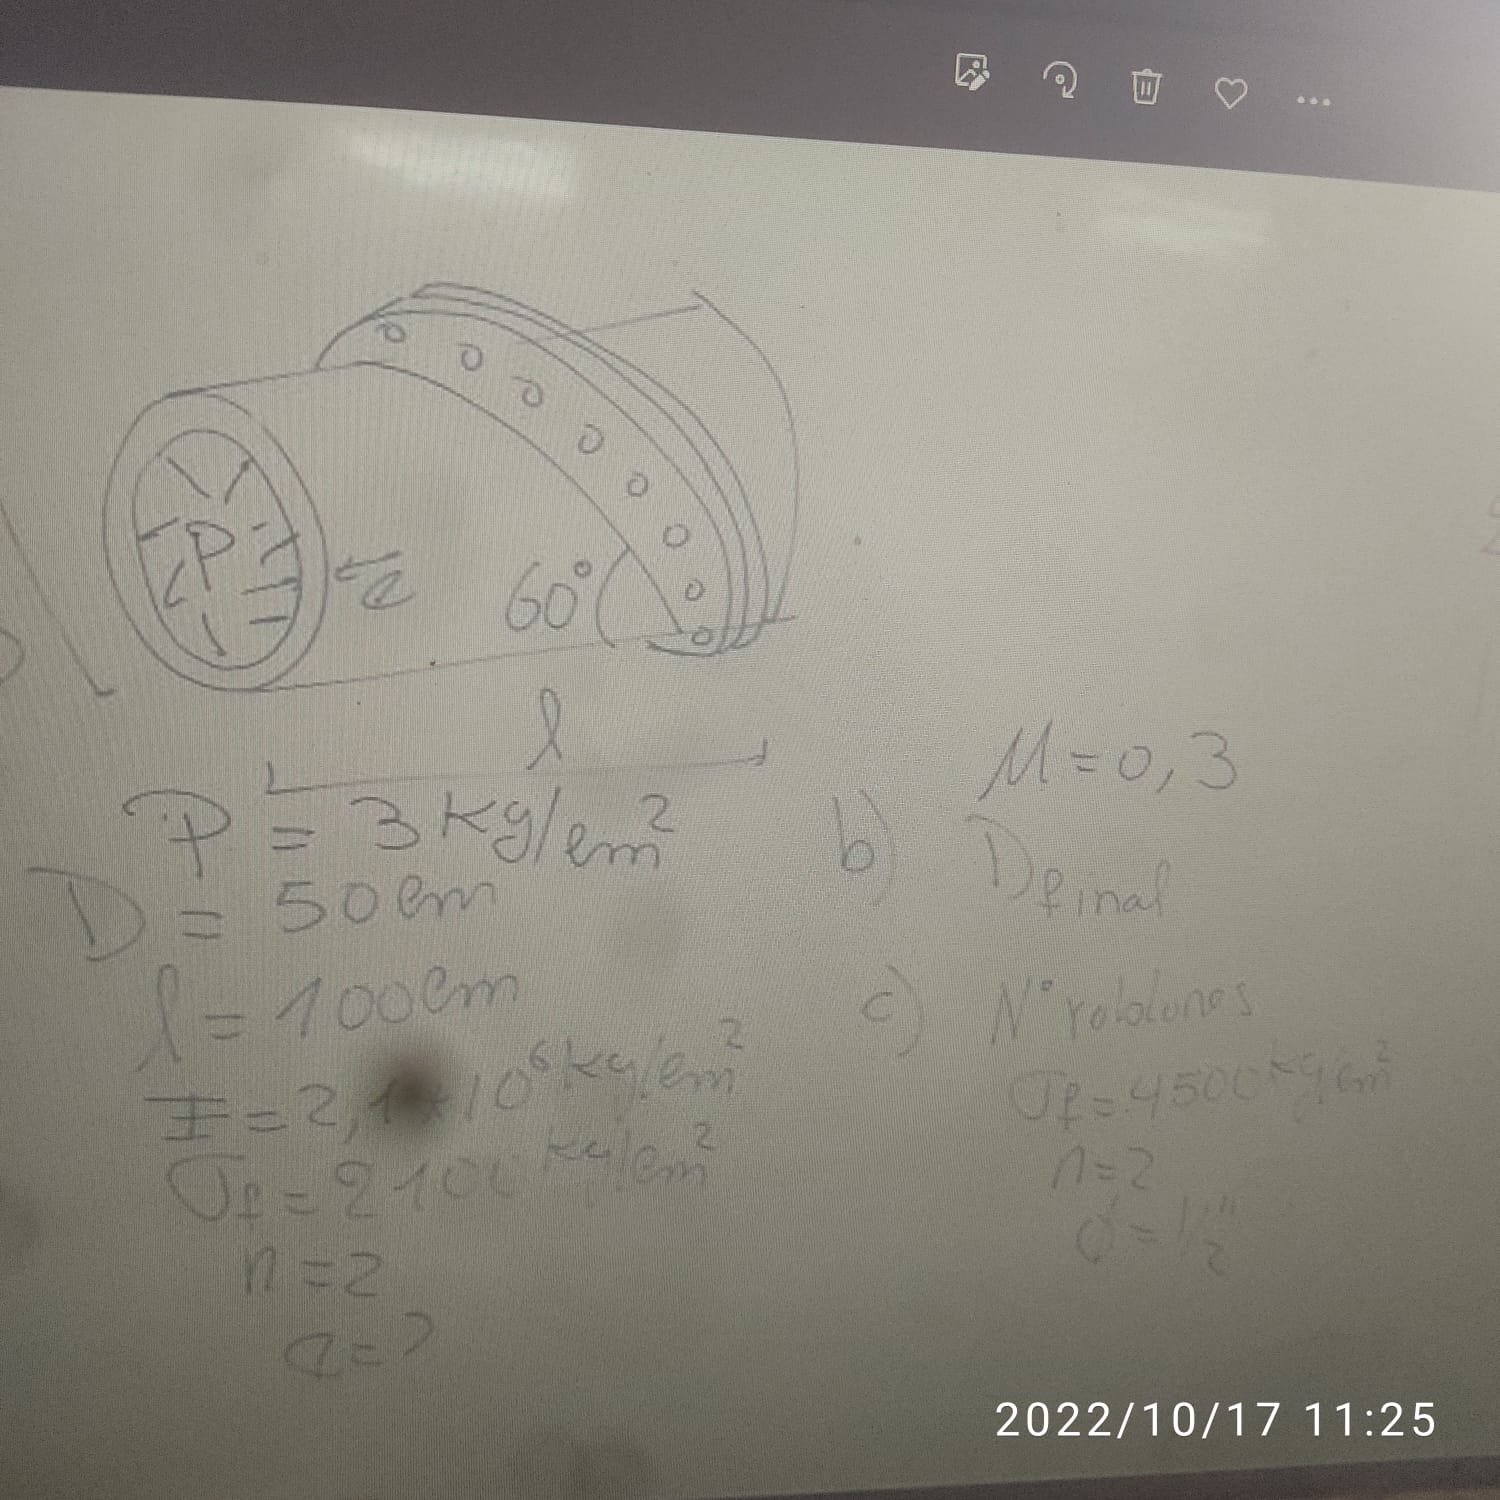 P
e
60°
l
P = 3 kg/cm²
D = 50 cm
l = 100 cm
E = 2,1*10⁶ kg/cm²
σf = 2100 kg/cm²
n = 2
e = ?
M = 0,3
b) Dfinal
c) N° roblones
σf = 4500 kg/cm²
n = 2
φ = 1/2"
2022/10/17 11:25